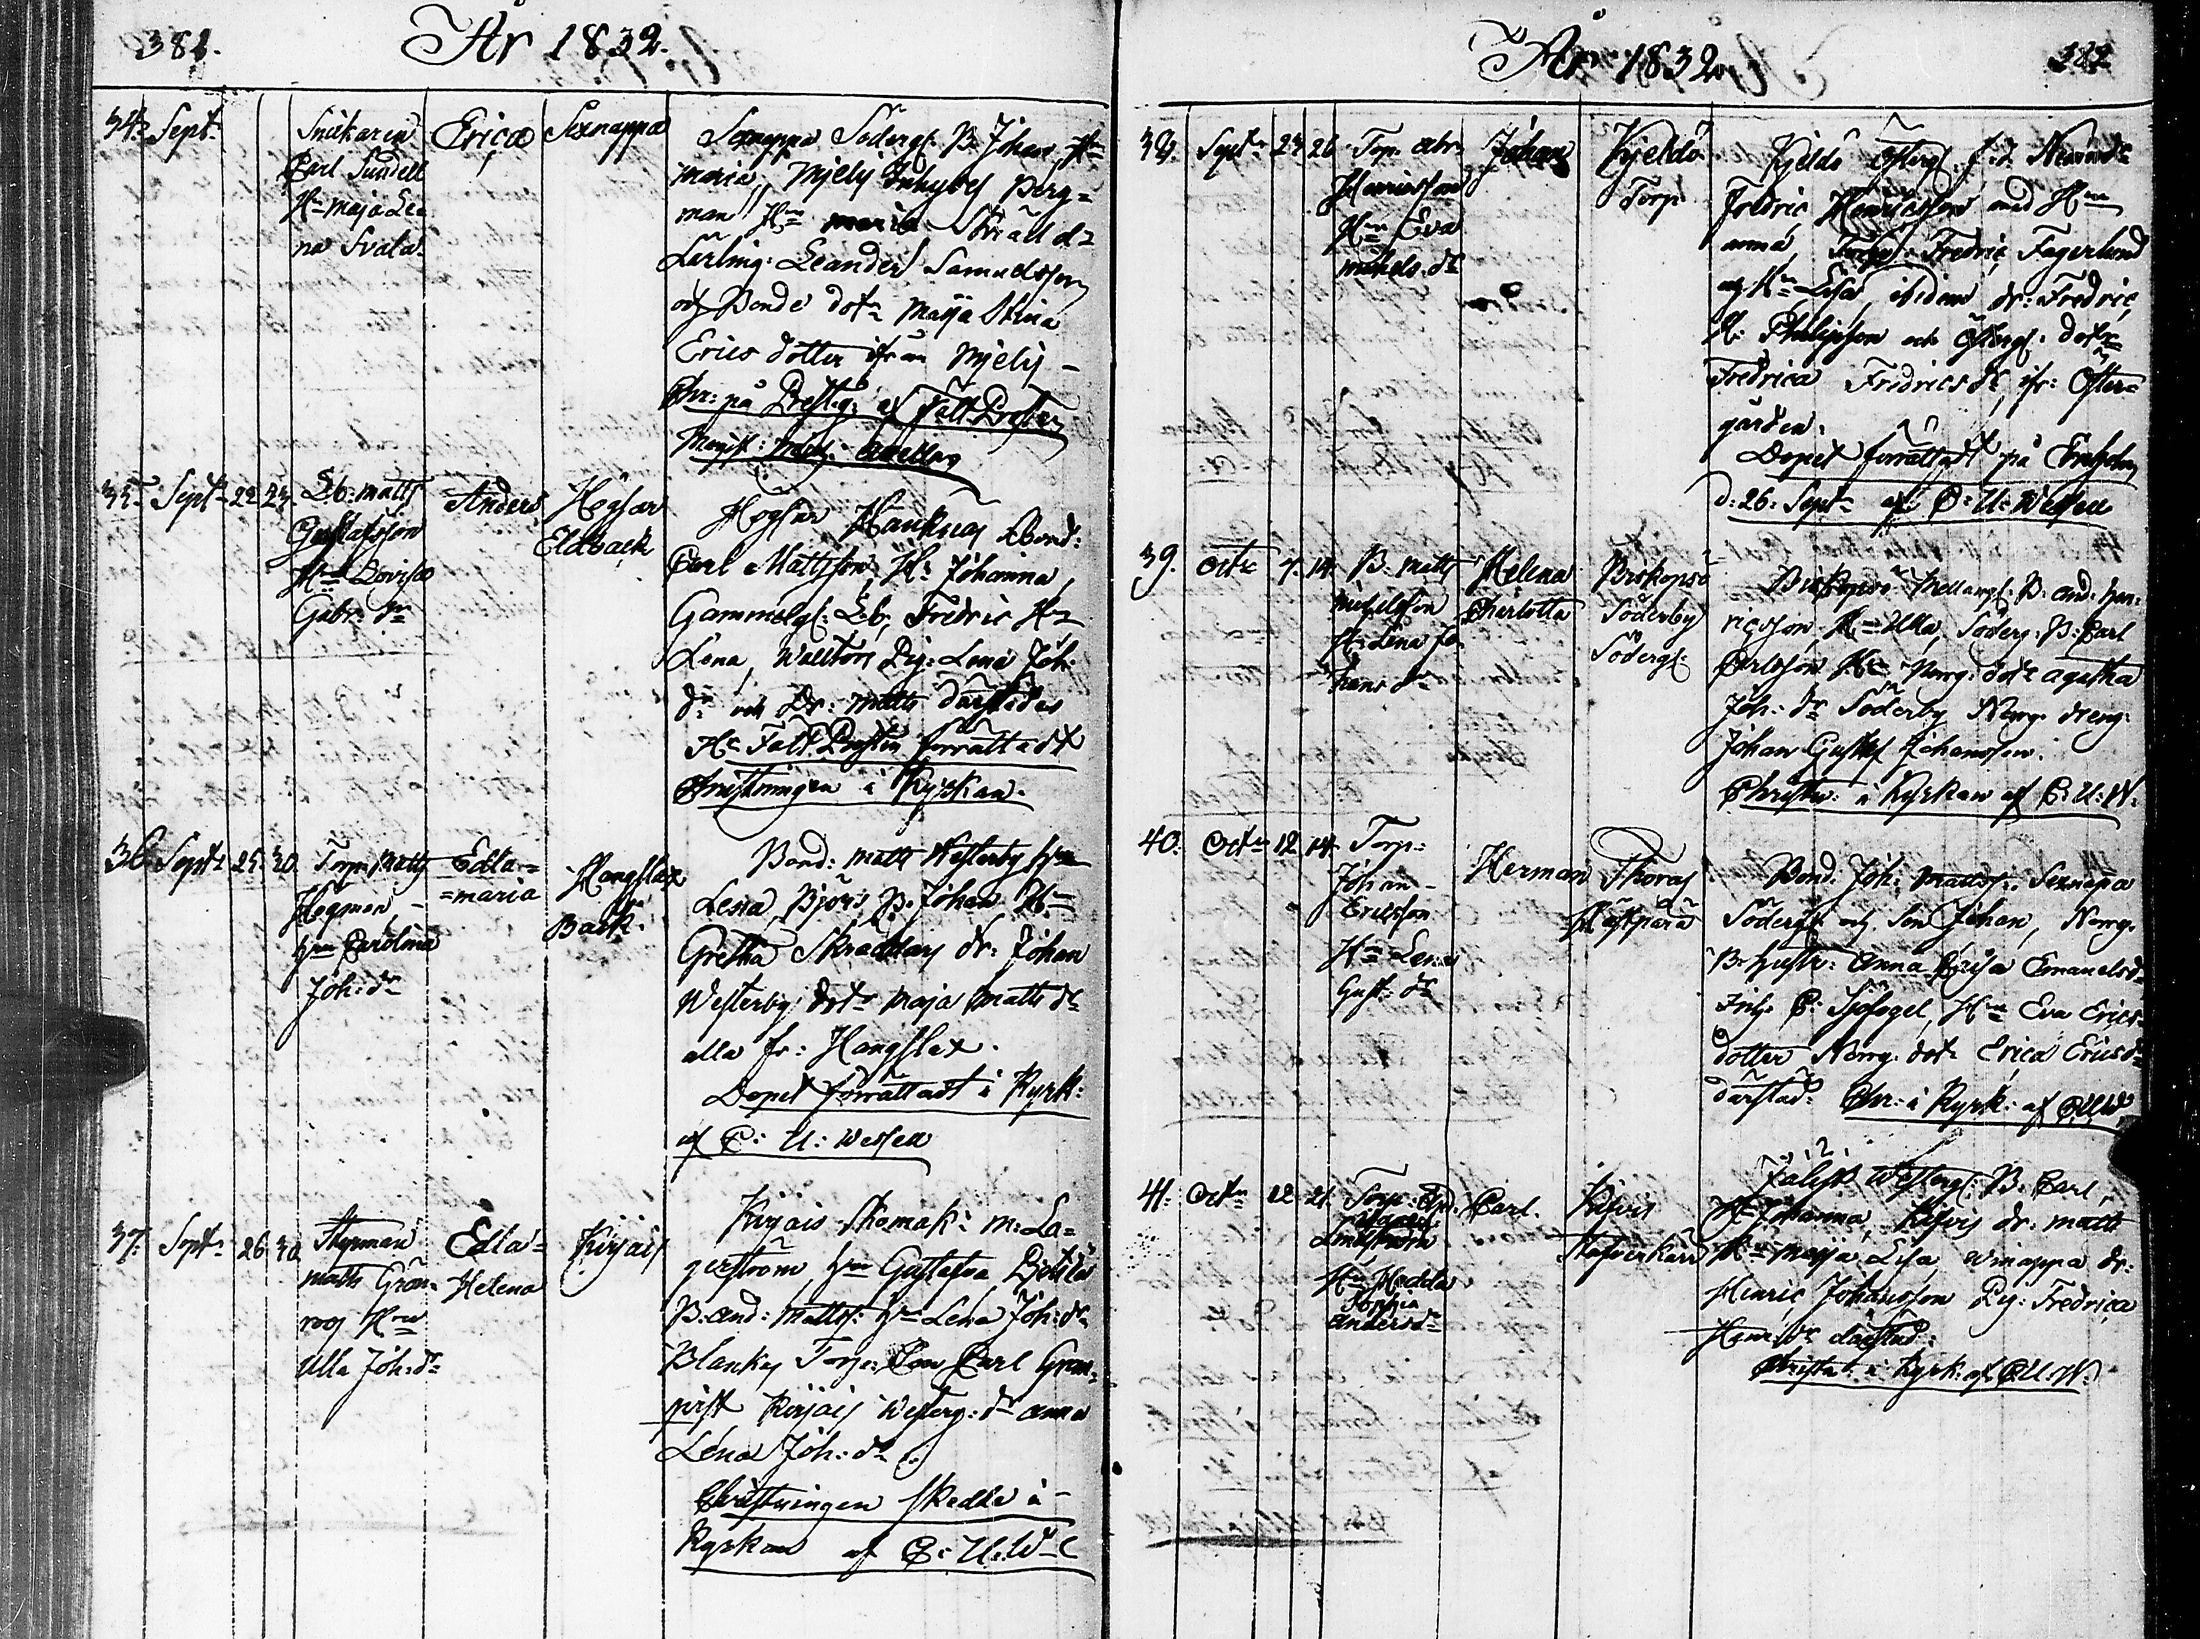 381.
År 1832.
34. Sept.
Snickaren
Carl Sundell
Hn Maja Le-
na Svala.
Erica
Sexnappa
Sexnappa Södergs. B. Johan, Hn
Maria, Mjelis Inhyses Berg-
man Hn Maria Skrädd.
Lärling: Leander Samuelsson
och Bonde dotr Maja Stina
Erics dotter ifrån Mjelis -
Chr: på Prestg: af Fält Prosten
35. Sept. 22. 23.
Lb: Matts
Gustafsson
Hn Lovisa
Gabr: dr
Anders
Högsar
Eldback
Högsar Bond:
Carl Mattsson, Hn Johanna,
Gammelgs: Lb, Fredric Hn
Lena, Pig: Lena Joh:
dr och Dr: Matts därstädes
Hr Fält Prosten förrättadt
Christningen i Kyrkan.
36. Sept. 25. 30.
Torp: Matts
Hegman,
Hn Carolina
Joh: dr
Edla-
=maria
Hangslax
Back.
Bond: Matts Westerby Hn
Lena, Björs B. Johan Hn
Gretha Skraddars dr: Johan
Westerby dotr Maja Matts dr
alla fr: Hangslax.
Dopet förrättadt i Kyrk:
af C: U: Wessell
37. Sept. 26. 30.
Styrman
Matts Gran-
roos Hru
Ulla Joh: dr
Edla-
Helena
Kirjais
Kirjais Skomak: M: La-
gerström, Hn Gustafva
B. And: Matts: Hn Lena Joh: dr
Blankes Torp: Son Carl Gran-
qvist Kirjais Westerg: dr Anna
Lena Joh: dr
Christningen skedde i
Kyrkan af C: U: W-l
382
År 1832.
38. Sept. 23 26
Torp. Abr.
Henricsson
Hn Eva
Michels. dr
Johan
Kjeldö
Torp
Kjeldö Östergs. f.d.
Fredric Henricsson med Hn
Anna, Torp: Fredric Fagerlund
och Hn Lisa, ibidem dr: Fredric
M: Philipsson och Östergs: dotr
Fredrica Fredrics dr, ifr: Öster-
gården.
Dopet förrättadt på
d: 26: Sept. af C: U: Wessell
39. Octr 7. 14.
B. Matts
Michelsson
Hn Lena Jo-
hans dr
Helena
Charlotta
Biskopsö
Söderby
Södergs:
Biskopsö Mellangs: B: And: Hen-
ricsson, Hn Ulla, Söderg: B: Carl
Carlsson Hn Norrg: dotr Agatha
Joh: dr Söderby Norrg. dreng:
Johan Gustaf Johansson.
Christn: i Kyrkan af C: U: W:
40. Octr 12. 14.
Torp:
Johan
Ericsson
Hn Lena
Gust: dr
Herman
Thoras
Bond. Joh: Matts: Sexnappa
Södergs och Son Johan, Norrg.
B: hustr: Anna Caisa Emanuelsdr
C: Sjöfogel, Hn Eva Erics-
dotter Norrg. dotr Erica Ericsdr
därstäd: Chr: i Kyrk: af CUW
41. Octr 12 21.
Lindström
Hn Hedda
Sophia
Andersdr
Carl.
Risvis
Westergs: B. Carl,
Hn Johanna, Risvis dr: Matts
Hn Maja Lisa, Winappa dr:
Henric Johansson Pig: Fredrica
Henr: dr därstäd:
Christn: i Kyrk: af C U: W: